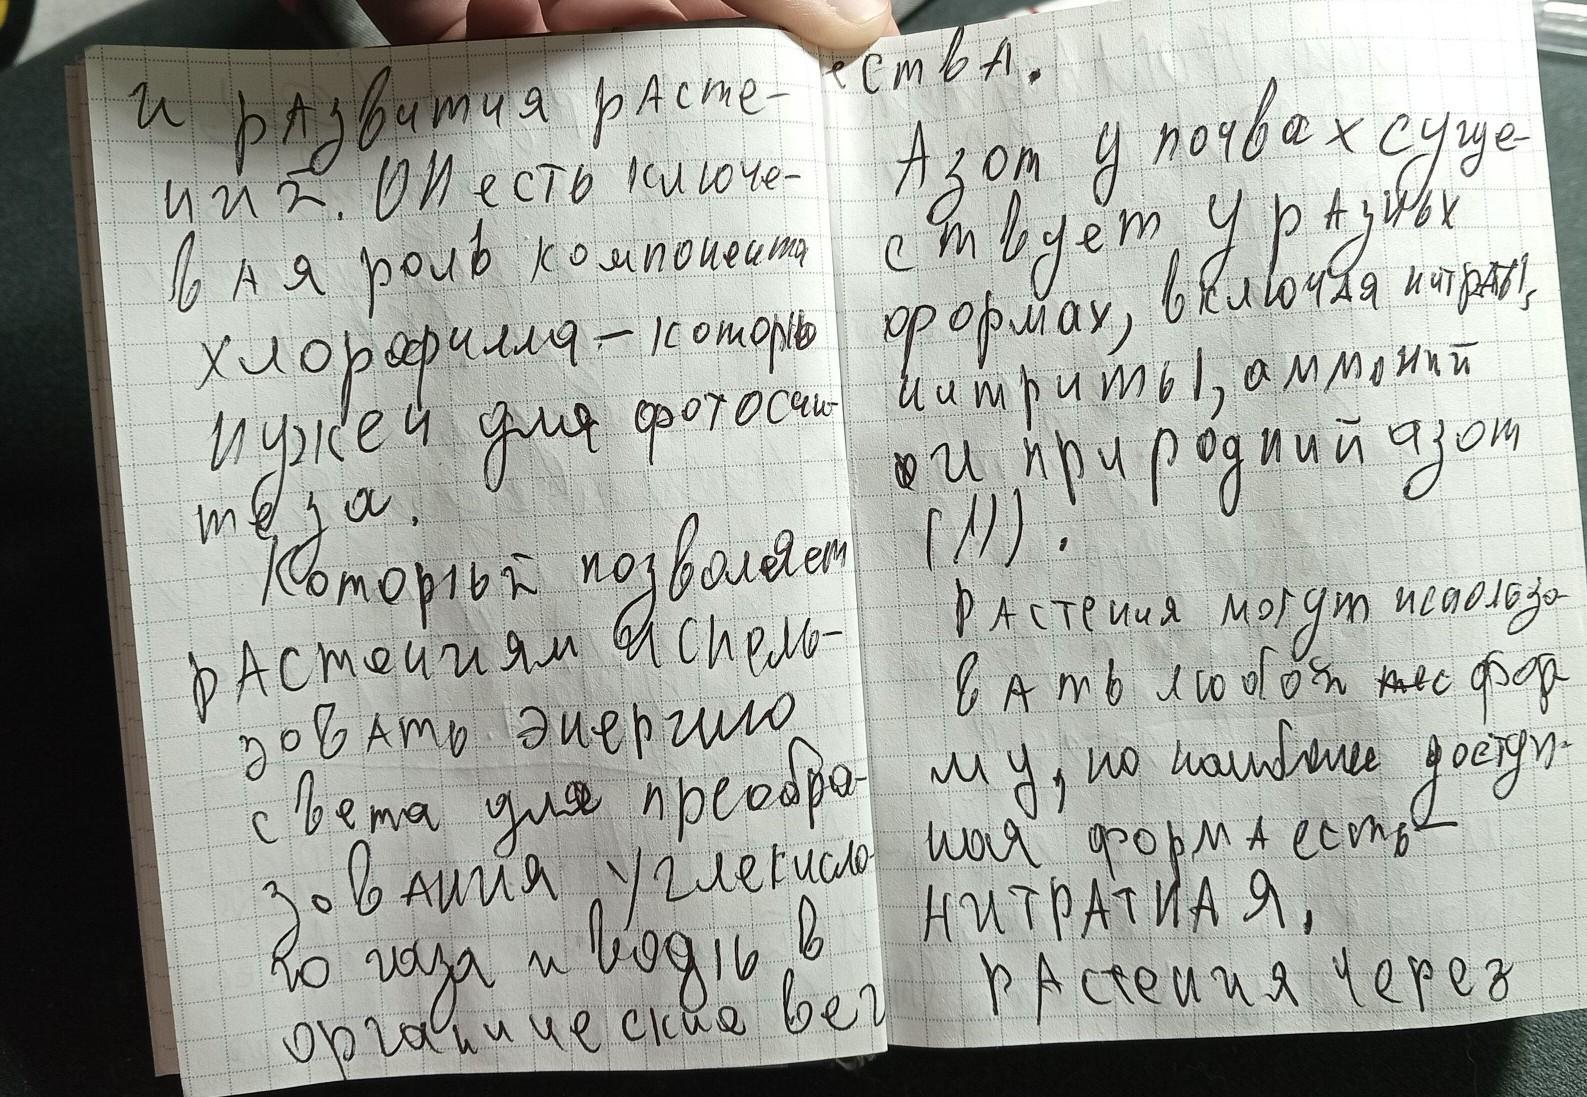 и развития расте-
ний. Он есть ключе-
вая роль компонента
хлорофилла – которы
нужен для фотосин-
теза.
Который позволяет
растениям испель-
зовать энергию
света для преобра-
зования углекисло-
го газа и воды в
органические вещ
ества.
Азот у почвах суще-
ствует у разных
формах, включая нитраты,
нитриты, аммоний
и природний азот
(N).
Растения могут использо-
вать любой фор
му, но наиболее доступ-
ная форма есть –
НИТРАТНАЯ.
Растения через